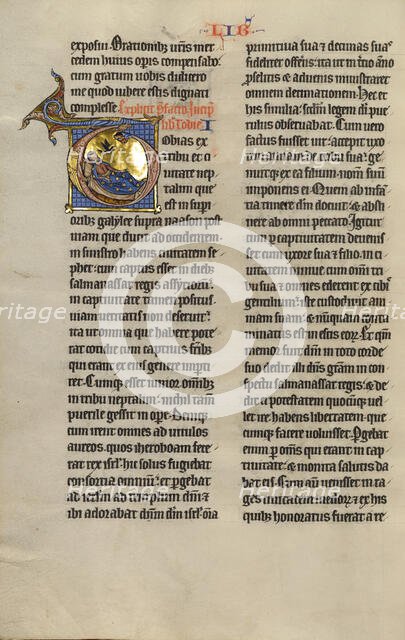 LIB
exposui. Orationibus uestris mer
cedem huius operis compensabo.
cum gratum uobis didicero
me quod iubere estis dignati
complesse. Explicit
lib tobie I
obias ex
tribu et ci
uitate nep
talim que
est in supi
oribus galylee supra naason post
uiam que ducit ad occidentem
in sinistro habens ciuitatem se
phet: cum captus esset in dieb;
salmanassar regis assyriorum.
in captiuitate tamen positus.
uiam ueritatis non deseruit.
ita ut omnia que habere pote
rat
qui erant ex eius genere imptiret
ret. Cumque esset iunior omnib;
in tribu neptalim. nichil tamen
puerile gessit in opere. Denique
cum irent omnes ad uitulos
aureos. quos iheroboam fece
rat rex isrl. hic solus fugiebat
consortia omnium. et pergebat
ad ierlm ad templum dni. et
ibi adorabat dnm dm isrl. omia
primitiua sua et decimas suas
fideliter offerens. ita ut in tercio anno
proselitis et aduenis ministraret
omnem decimationem. Hec et
his similia secundum legem dei pu
erulus obseruabat. Cum uero
factus fuisset uir: accepit uxo
rem annam de tribu sua. ge
nuitque ex ea filium. nomen suum
imponens ei. Quem ab infan
tia timere deum docuit. et absti
nere ab omni peccato. Igitur
cum per captiuitatem deuenis
set cum uxore sua et filio. in ci
uitatem niniuen cum omni tri
bu sua. et omnes ederent ex cibis
gentilium: iste custodiuit ani
mam suam. et nunquam conta
minatus est in escis eorum. Et quoniam
memor fuit domini in toto corde
suo: dedit illi deus gratiam in con
spectu salmanassar regis. et de
dit illi potestatem quocumque uel
let ire. habens libertatem que
cumque facere uoluisset. Pergebat
ergo ad omnes qui erant in cap
tiuitate. et monita salutis da
bat eis. Cum autem uenisset in ra
ges ciuitatem medorum. et ex his
quibus honoratus fuerat a re
Heritage
Heritage
Heritage
Heritage
Heritage
Heritage
C